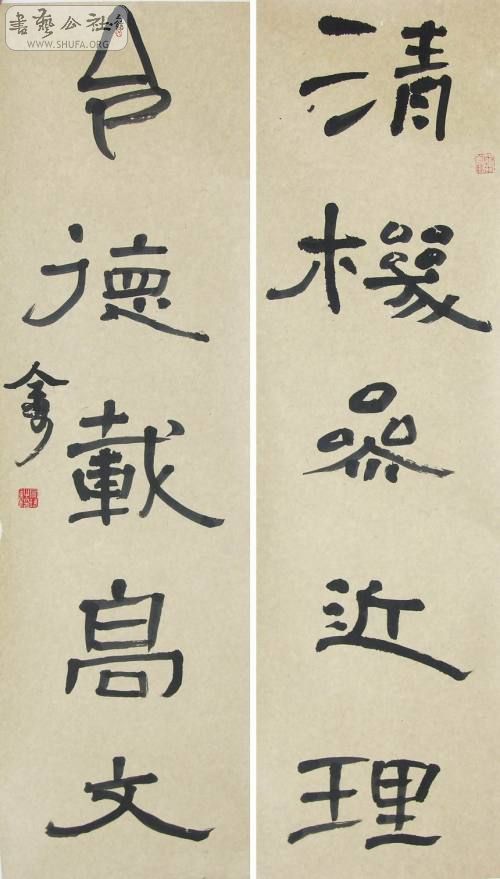 清機參近理
令德載高文
書藝公社
WWW.SHUFA.ORG